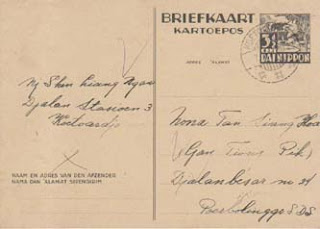 BRIEFKAART
KARTOEPOS
3½
DAI NIPPON
ADRES ALAMAT
Nj Shen Liang Ngan
Djalan Stasoen 3
Koetoardjo
NAAM EN ADRES VAN DEN AFZENDER
NAMA DAN ALAMAT SIPENGIRIM
Nona Tan Siang Hoa
(Gan Tiong Pik)
Djalanbesar no 21
Probolinggo S.D.S